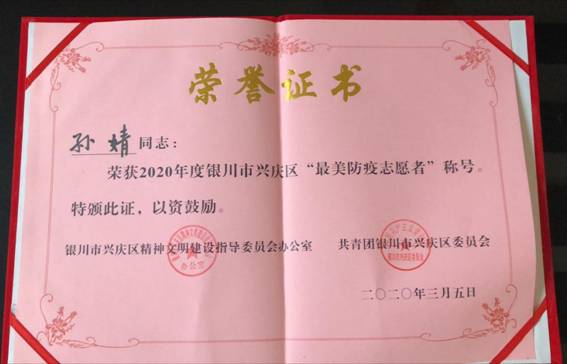 荣誉证书
孙婧同志：
荣获2020年度银川市兴庆区“最美防疫志愿者”称号。
特颁此证，以资鼓励。
银川市兴庆区精神文明建设指导委员会办公室 共青团银川市兴庆区委员会
办公室
二〇二〇年三月五日